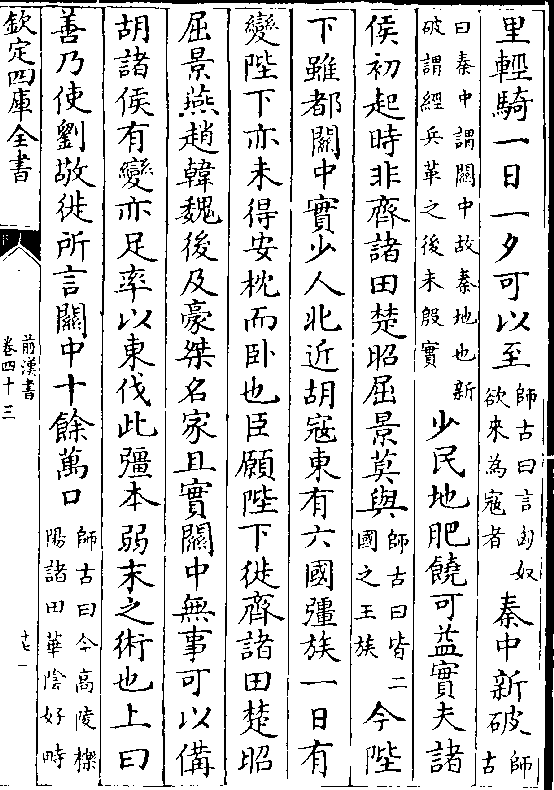 里輕騎一日一夕可以至師古曰言匈奴欲來為冦者秦中新破師古
曰秦中謂關中故秦地也新破謂經兵革之後未殷實少民地肥饒可益實夫諸
侯初起時非齊諸田楚昭屈景莫與師古曰皆二國之王族今陛
下雖都關中實少人北近胡冦東有六國彊族一日有
變陛下亦未得安枕而卧也臣願陛下徙齊諸田楚昭
屈景燕趙韓魏後及豪桀名家且實關中無事可以備
胡諸侯有變亦足率以東伐此彊本弱末之術也上曰
善乃使劉敬徙所言關中十餘萬口師古曰今高陵櫟陽諸田華陰好畤
欽定四庫全書
前漢書
卷四十三
十七